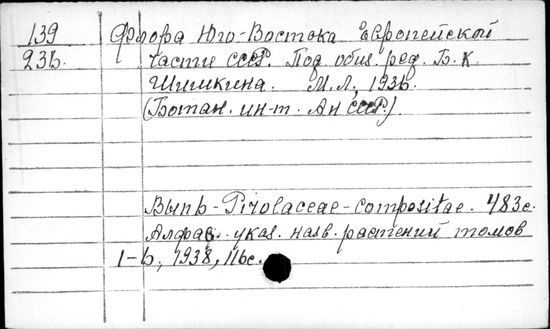 139 Флора Юго-Востока Европейской
236. части СССР. Под общ. ред. Б.К.
Шишкина. М.Л., 1936.
(Ботан. ин-т. Ан СССР.)
Вып6-Pirolaceae-compositae. 483с.
Алфав. указ. назв. растений томов
1-6, 1938, 116с.